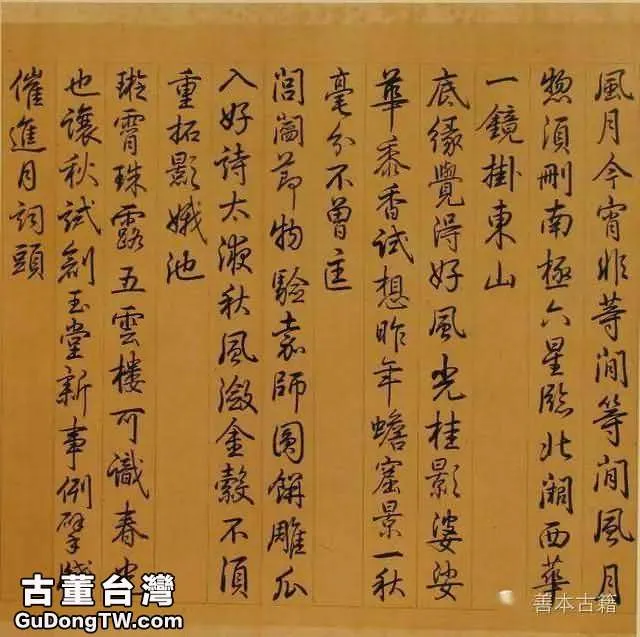 風月今宵非等閒等閒風月
惣須刪南極六星臨北闕西華
一鏡掛東山
底緣覺得好風光桂影婆娑
華黍香試想昨年蟾窟景一秋
毫分不曾匡
閭閻節物驗嘉師圓餅雕瓜
入好詩太液秋風瀲金縠不須
重拓影娥池
璇霄珠露五雲樓可識春
也讓秋試創玉堂新事例擘
催進月詞頭
古董台灣
GuDongTW.com
善本古籍